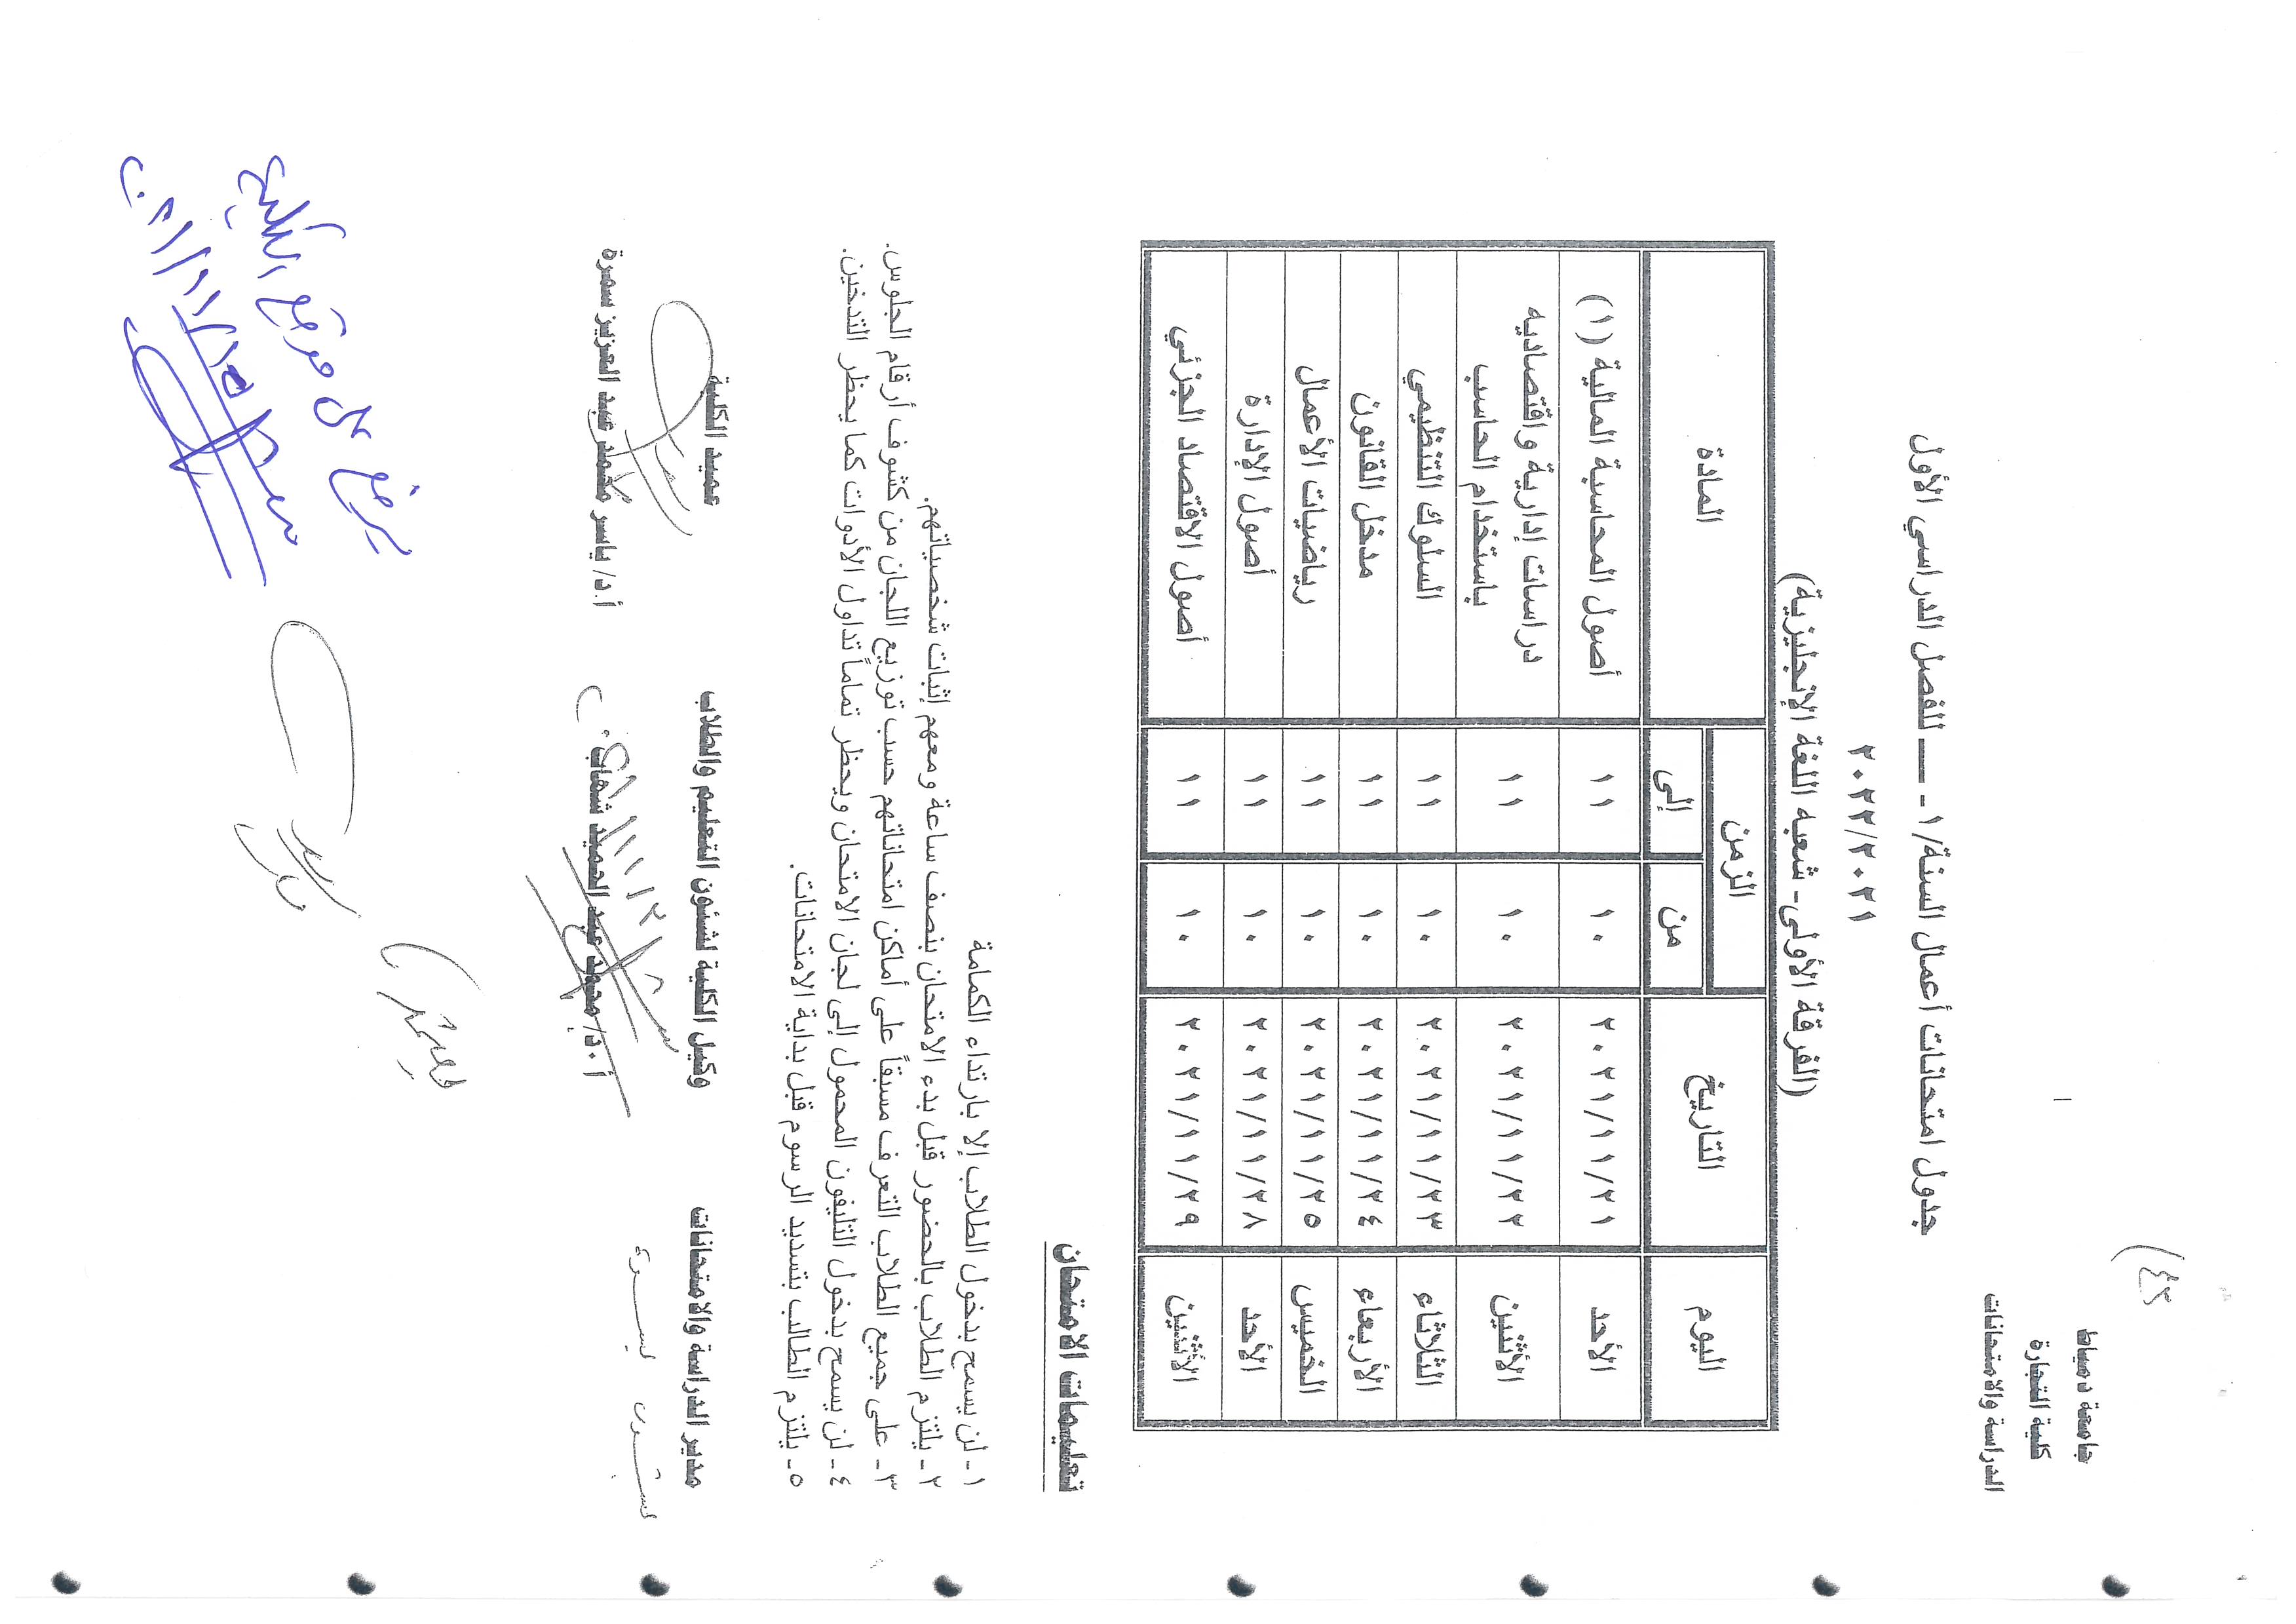 جامعة دمياط
كلية التجارة
الدراسة والامتحانات
جدول امتحانات أعمال السنة/١ - ــــ للفصل الدراسي الأول
٢٠٢٢/٢٠٢١
(الفرقة الأولى- شعبه اللغة الإنجليزية)
اليوم التاريخ الزمن المادة
من إلى
الأحد ٢٠٢١/١١/٢١ ١٠ ١١ أصول المحاسبة المالية (١)
الأثنين ٢٠٢١/١١/٢٢ ١٠ ١١ دراسات إدارية واقتصاديه
باستخدام الحاسب
الثلاثاء ٢٠٢١/١١/٢٣ ١٠ ١١ السلوك التنظيمي
الأربعاء ٢٠٢١/١١/٢٤ ١٠ ١١ مدخل القانون
الخميس ٢٠٢١/١١/٢٥ ١٠ ١١ رياضيات الأعمال
الأحد ٢٠٢١/١١/٢٨ ١٠ ١١ أصول الإدارة
الأثنين ٢٠٢١/١١/٢٩ ١٠ ١١ أصول الاقتصاد الجزئي
تعليمات الامتحان
١- لن يسمح بدخول الطلاب إلا بارتداء الكمامة
٢- يلتزم الطلاب بالحضور قبل بدء الامتحان بنصف ساعة ومعهم إثبات شخصياتهم.
٣- على جميع الطلاب التعرف مسبقاً على أماكن امتحاناتهم حسب توزيع اللجان من كشوف أرقام الجلوس.
٤- لن يسمح بدخول التليفون المحمول إلى لجان الامتحان ويحظر تماماً تداول الأدوات كما يحظر التدخين.
٥- يلتزم الطالب بتسديد الرسوم قبل بداية الامتحانات.
مدير الدراسة والامتحانات وكيل الكلية لشئون التعليم والطلاب عميد الكلية
أ.د/ محمود عبد الحميد شهاب أ.د/ ياسر محمد عبد العزيز سمرة